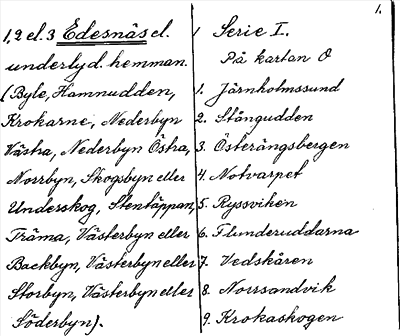 1.
1, 2 el. 3 Edesnäs el.
underlyd. hemman.
(Byle, Hamnudden,
Krokarne, Nederbyn
Västra, Nederbyn Östra,
Norrbyn, Skogsbyn eller
Underskog, Stentäppan,
Träma, Västerbyn eller
Backbyn, Västerbyn eller
Storbyn, Västerbyn eller
Söderbyn).
Serie I.
På kartan O
1. Järnholmssund
2. Stångudden
3. Österängsbergen
4. Notvarpet
5. Ryssviken
6. Flunderuddarna
7. Vedskåren
8. Norrsandvik
9. Krokaskogen